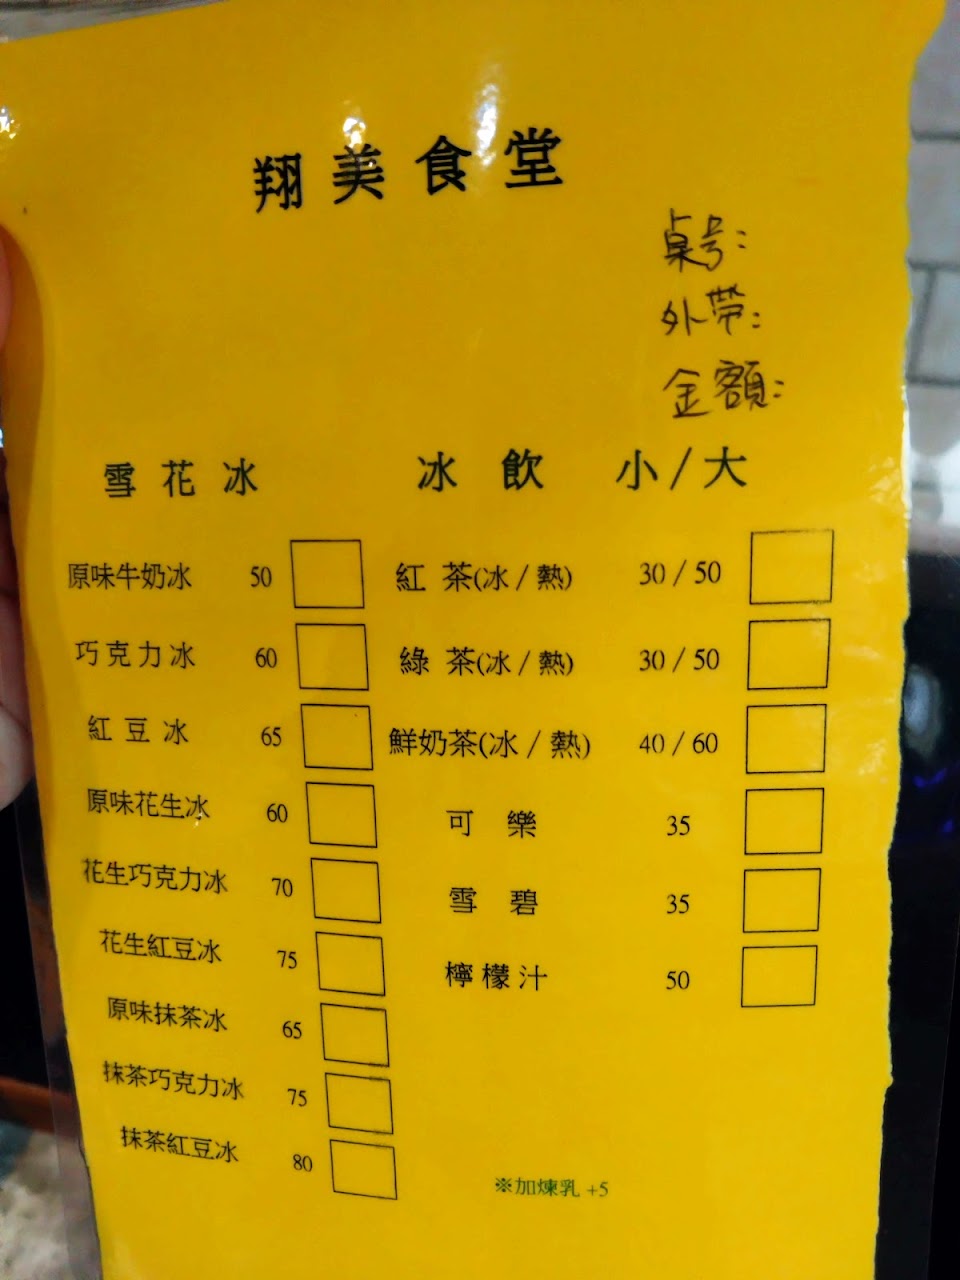 翔美食堂
桌号:
外帶:
金額:
雪花冰
原味牛奶冰 50
巧克力冰 60
紅豆冰 65
原味花生冰 60
花生巧克力冰 70
花生紅豆冰 75
原味抹茶冰 65
抹茶巧克力冰 75
抹茶紅豆冰 80
冰飲 小/大
紅茶(冰/熱) 30/50
綠茶(冰/熱) 30/50
鮮奶茶(冰/熱) 40/60
可樂 35
雪碧 35
檸檬汁 50
※加煉乳 +5